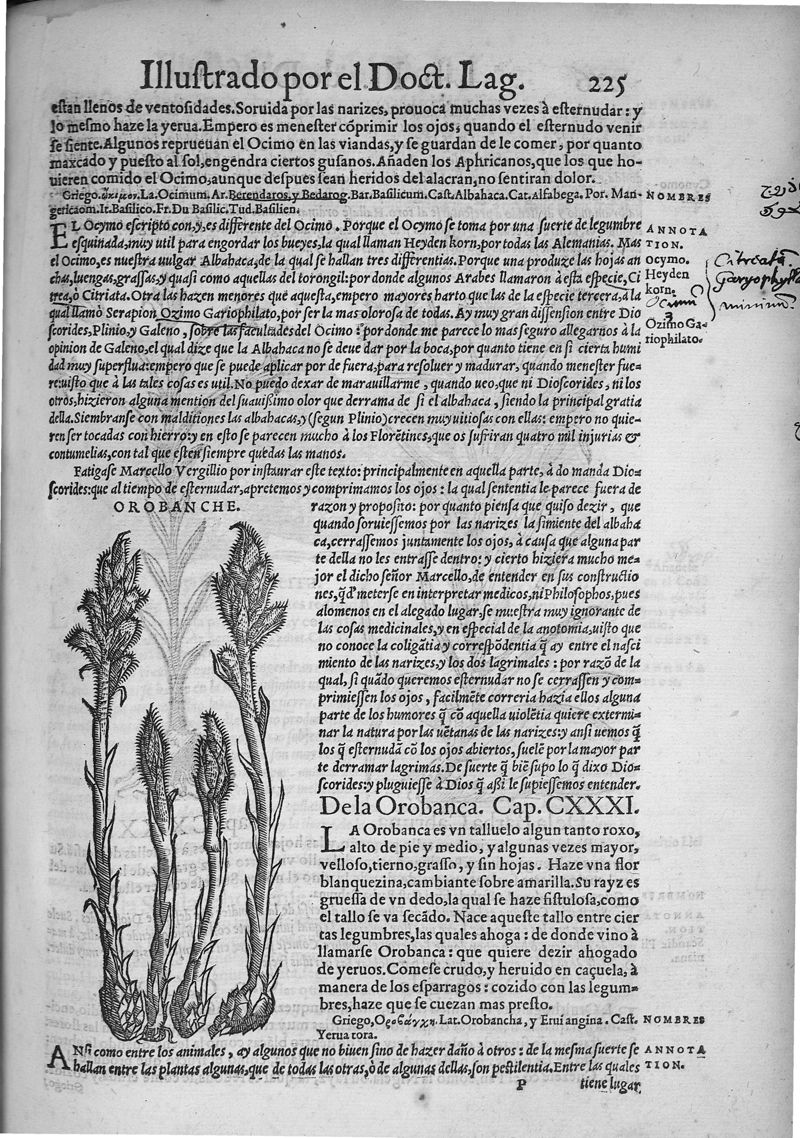 Illustrado por el Doct. Lag. 225
estan llenos de ventosidades. Soruida por las narizes, prouoca muchas vezes à esternudar: y
lo mesmo haze la yerua. Empero es menester cõprimir los ojos, quando el esternudo venir
se siente. Algunos reprueuan el Ocimo en las viandas, y se guardan de le comer, por quanto
maxcado y puesto al sol, engendra ciertos gusanos. Añaden los Aphricanos, que los que ho-
uieren comido el Ocimo, aunque despues sean heridos del alacran, no sentiran dolor.
Griego. ὤκιμον. La. Ocimum. Ar. Berendaros, y Bedarog. Bar. Basilicum. Cast. Albahaca. Cat. Alfabega. Por. Man-
gericaom. It. Basilico. Fr. Du Basilic. Tud. Basilien.
NOMBRES
EL Ocymo escripto con, y, es differente del Ocimo. Porque el Ocymo se toma por una suerte de legumbre
esquinada, muy util para engordar los bueyes, la qual llaman Heyden korn, por todas las Alemanias. Mas
el Ocimo, es nuestra uulgar Albahaca, de la qual se hallan tres differentias. Porque una produze las hojas an
chas, luengas, grassas, y quasi como aquellas del torongil: por donde algunos Arabes llamaron à esta especie, Ci
trea, ò Citriata. Otra las hazen menores que aquesta, empero mayores harto que las de la especie tercera, à la
qual llamò Serapion, Ozimo Gariophilato, por ser la mas olorosa de todas. Ay muy gran dissension entre Dio
scorides, Plinio, y Galeno, sobre las facultades del Ocimo: por donde me parece lo mas seguro allegarnos à la
opinion de Galeno, el qual dize que la Albahaca no se deue dar por la boca, por quanto tiene en si cierta humi
dad muy superflua: empero que se puede aplicar por de fuera, para resoluer y madurar, quando menester fue-
re: uisto que à las tales cosas es util. No puedo dexar de marauillarme, quando ueo, que ni Dioscorides, ni los
otros, hizieron alguna mention del suauissimo olor que derrama de si el albahaca, siendo la principal gratia
della. Siembranse con malditiones las albahacas, y (segun Plinio) crecen muy uitiosas con ellas: empero no quie-
ren ser tocadas con hierro: y en esto se parecen mucho à los Florẽtines, que os sufriran quatro mil injurias &
contumelias, con tal que esten siempre quedas las manos.
ANNOTA
TION.
Ocymo.
Heyden
korn.
Ocimũ
Ozimo Ga-
riophilato.
Citreatã
Garyophylla
minimũ
Fatigase Marcello Vergillio por instaurar este texto: principalmente en aquella parte, à do manda Dio-
scorides: que al tiempo de esternudar, apretemos y comprimamos los ojos: la qual sententia le parece fuera de
OROBANCHE.
razon y proposito: por quanto piensa que quiso dezir, que
quando soruiessemos por las narizes la simiente del albaha
ca, cerrassemos juntamente los ojos, à causa que alguna par
te della no les entrasse dentro: y cierto hiziera mucho me-
jor el dicho señor Marcello, de entender en sus constructio
nes, q̃ d' meterse en interpretar medicos, ni Philosophos, pues
alomenos en el alegado lugar, se muestra muy ignorante de
las cosas medicinales, y en especial de la anotomia, uisto que
no conoce la coligãtia y correspõdentia q̃ ay entre el nasci
miento de las narizes, y los dos lagrimales: por razõ de la
qual, si quãdo queremos esternudar no se cerrassen y com-
primiessen los ojos, facilmẽte correria hazia ellos alguna
parte de los humores q̃ cõ aquella uiolẽtia quiere extermi-
nar la natura por las uẽtanas de las narizes: y ansi uemos q̃
los q̃ esternudã cõ los ojos abiertos, suelẽ por la mayor par
te derramar lagrimas. De suerte q̃ biẽ supo lo q̃ dixo Dio-
scorides: y pluguiesse à Dios q̃ aßi le supiessemos entender.
De la Orobanca. Cap. CXXXI.
LA Orobanca es vn talluelo algun tanto roxo,
alto de pie y medio, y algunas vezes mayor,
velloso, tierno, grasso, y sin hojas. Haze vna flor
blanquezina, cambiante sobre amarilla. Su rayz es
gruessa de vn dedo, la qual se haze fistulosa, como
el tallo se va secãdo. Nace aqueste tallo entre cier
tas legumbres, las quales ahoga: de donde vino à
llamarse Orobanca: que quiere dezir ahogado
de yeruos. Comese crudo, y heruido en caçuela, à
manera de los esparragos: cozido con las legum-
bres, haze que se cuezan mas presto.
Griego, Οροβάγχη. Lat. Orobancha, y Erui angina. Cast.
Yerua tora.
NOMBRES
ANsi como entre los animales, ay algunos que no biuen sino de hazer daño à otros: de la mesma suerte se
hallan entre las plantas algunas, que de todas las otras, ò de algunas dellas, son pestilentia. Entre las quales
ANNOTA
TION.
P tiene lugar